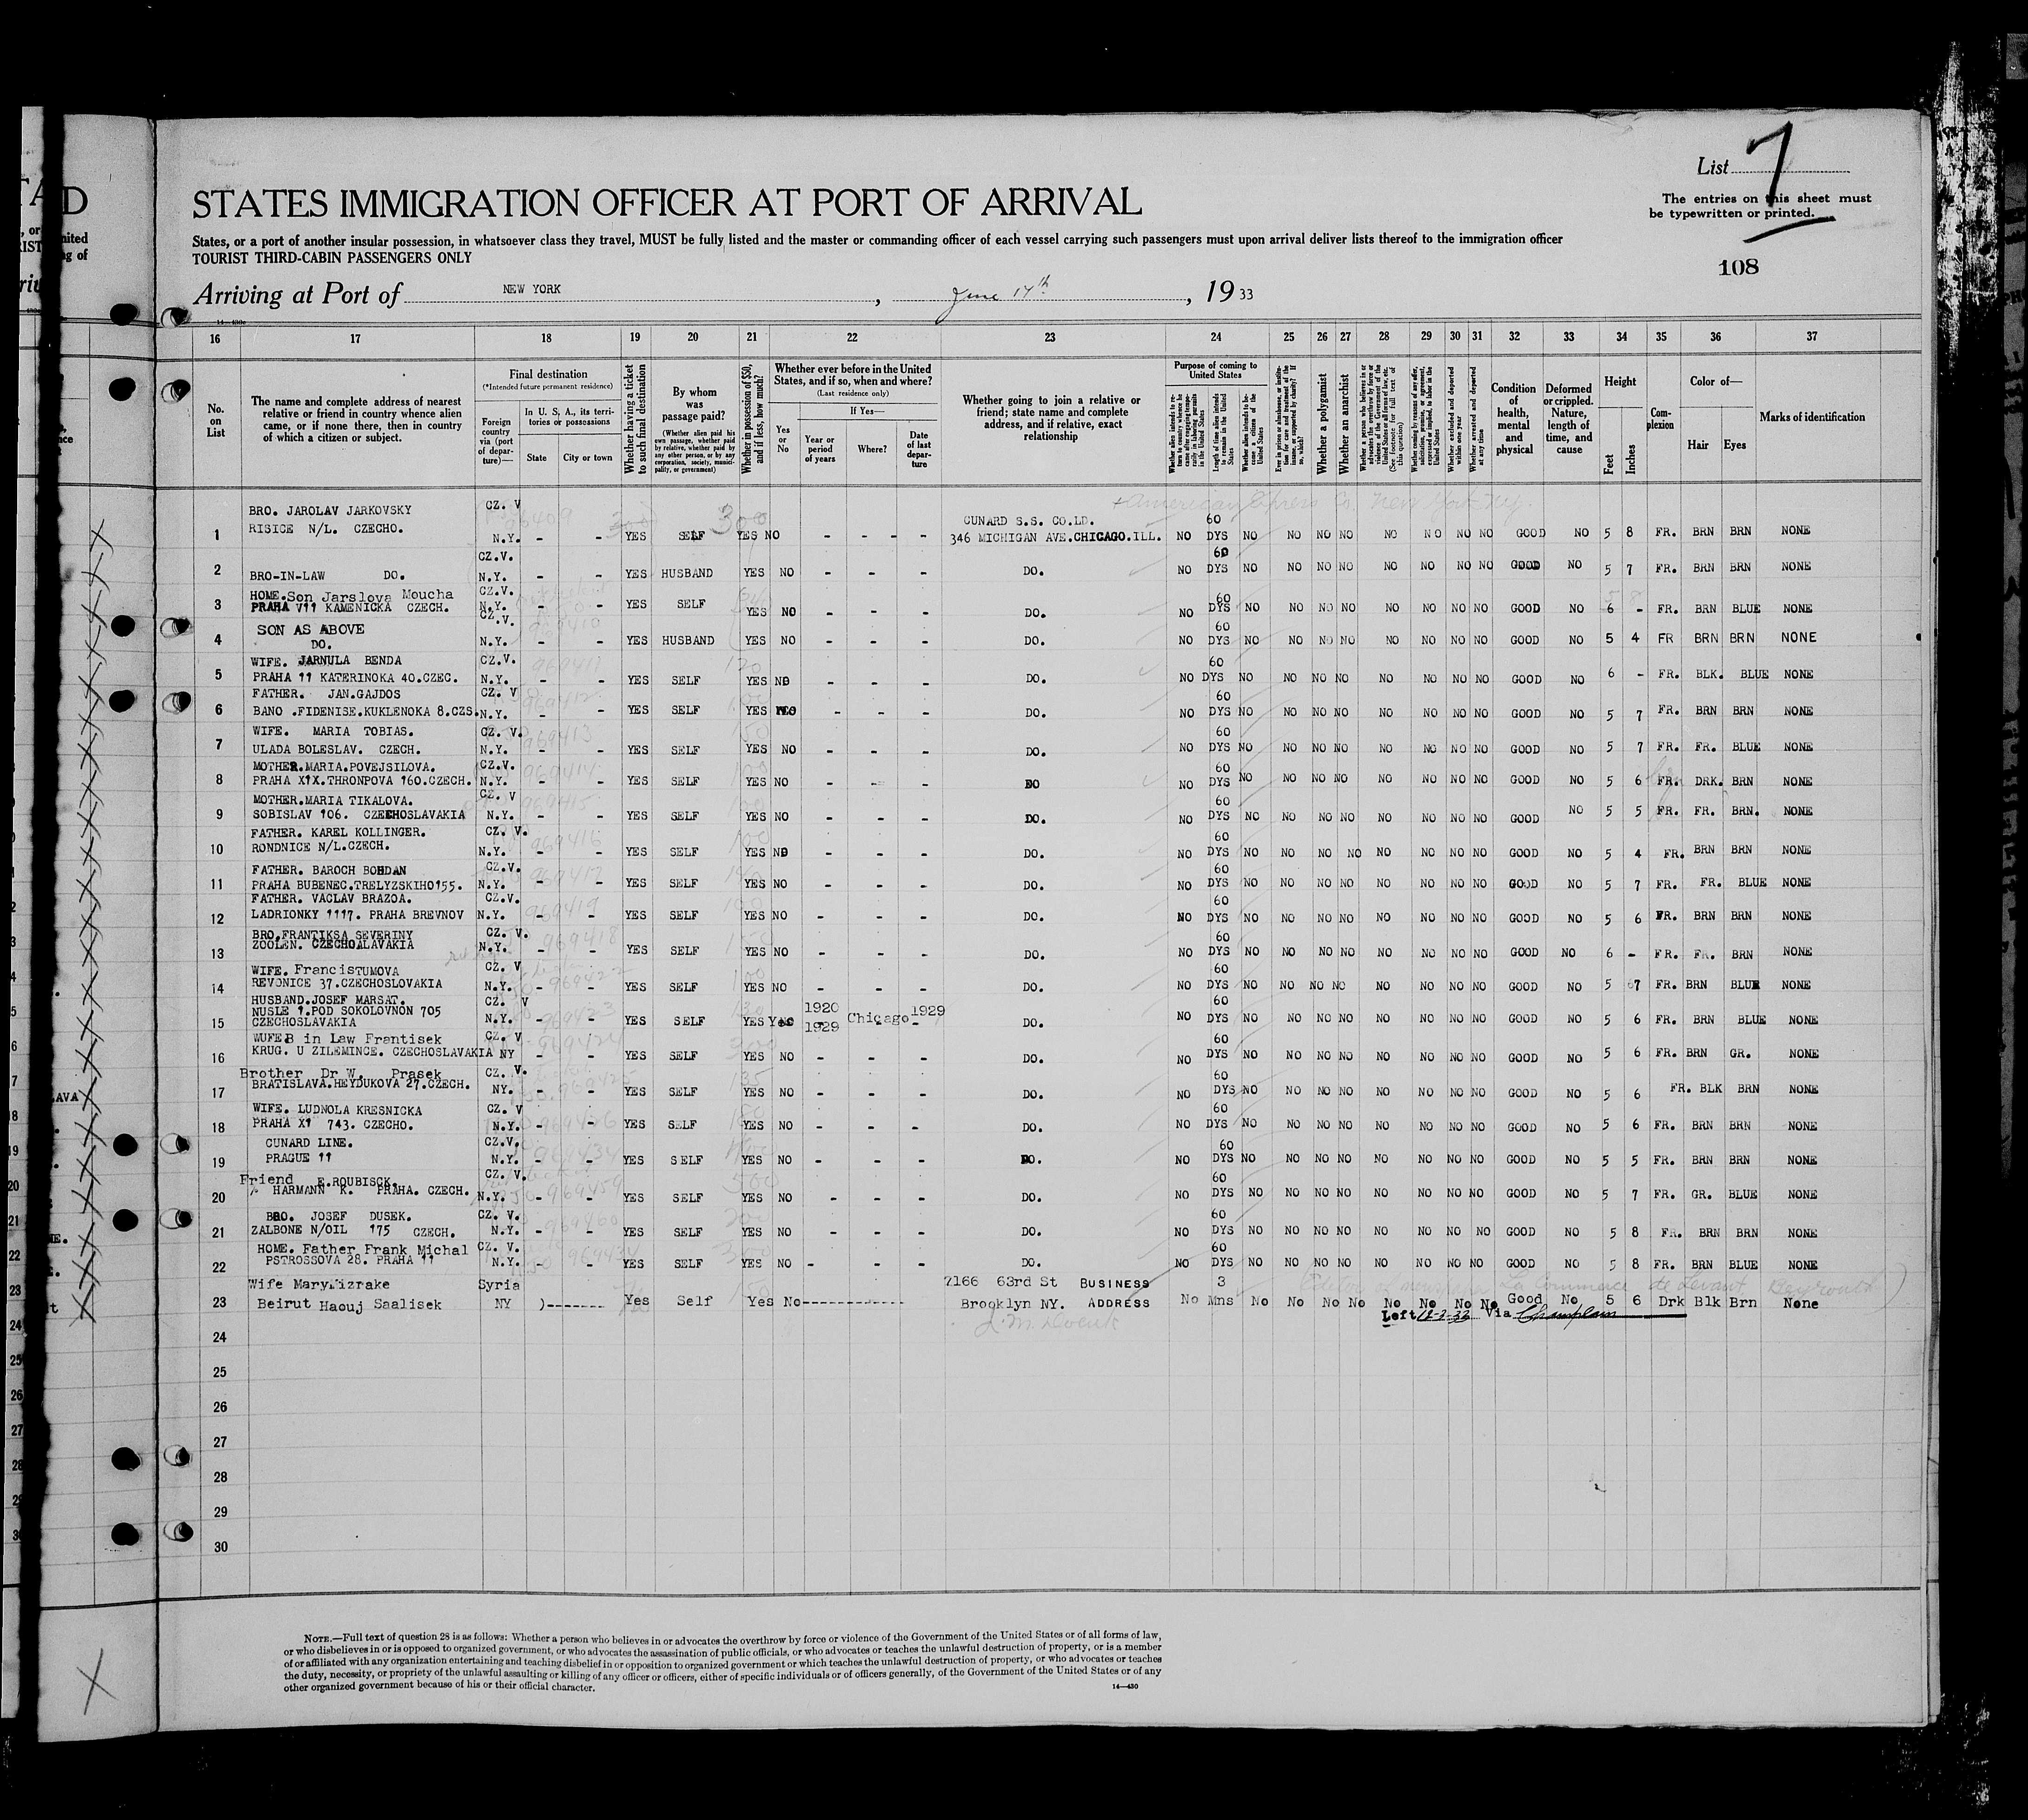 List 7
The entries on this sheet must
be typewritten or printed.
108
STATES IMMIGRATION OFFICER AT PORT OF ARRIVAL
States, or a port of another insular possession, in whatsoever class they travel, MUST be fully listed and the master or commanding officer of each vessel carrying such passengers must upon arrival deliver lists thereof to the immigration officer
TOURIST THIRD-CABIN PASSENGERS ONLY
Arriving at Port of NEW YORK, June 17th, 1933
16 17 18 19 20 21 22 23 24 25 26 27 28 29 30 31 32 33 34 35 36 37
No. on List
The name and complete address of nearest relative or friend in country whence alien came, or if none there, then in country of which a citizen or subject.
Final destination
(*Intended future permanent residence)
Foreign country via (port of departure)—
In U. S. A., its territories or possessions
State
City or town
Whether having a ticket to such final destination
By whom was passage paid?
(Whether alien paid his own passage, whether paid by relative, whether paid by any other person, or by any corporation, society, municipality, or government)
Whether in possession of $50, and if less, how much?
Whether ever before in the United States, and if so, when and where?
(Last residence only)
Yes or No
If Yes—
Year or period of years
Where?
Date of last departure
Whether going to join a relative or friend; state name and complete address, and if relative, exact relationship
Purpose of coming to United States
Length of time alien intends to remain in the United States
Whether alien intends to become a citizen of the United States
Whether a polygamist
Whether an anarchist
Whether excluded and deported within one year
Whether arrested and deported at any time
Condition of health, mental and physical
Deformed or crippled. Nature, length of time, and cause
Height
Feet
Inches
Complexion
Color of—
Hair
Eyes
Marks of identification
BRO. JAROLAV JARKOVSKY CZ. V CUNARD S.S. CO.LD. 60
1 RISICE N/L. CZECHO. N.Y. - - YES SELF YES NO - - - - 346 MICHIGAN AVE.CHICAGO.ILL. NO DYS NO NO NO NO NO NO NO NO GOOD NO 5 8 FR. BRN BRN NONE
CZ.V. 60
2 BRO-IN-LAW DO. N.Y. - - YES HUSBAND YES NO - - - DO. NO DYS NO NO NO NO NO NO NO NO GOOD NO 5 7 FR. BRN BRN NONE
HOME.Son Jarslova Moucha CZ.V. 60
3 PRAHA V11 KAMENICKA CZECH. N.Y. - - YES SELF YES NO - - - DO. NO DYS NO NO NO NO NO NO NO NO GOOD NO 6 - FR. BRN BLUE NONE
SON AS ABOVE CZ.V. 60
4 DO. N.Y. - - YES HUSBAND YES NO - - - DO. NO DYS NO NO NO NO NO NO NO NO GOOD NO 5 4 FR BRN BRN NONE
WIFE. JARNULA BENDA CZ.V. 60
5 PRAHA 11 KATERINOKA 40.CZEC. N.Y. - - YES SELF YES NO - - - DO. NO DYS NO NO NO NO NO NO NO NO GOOD NO 6 - FR. BLK. BLUE NONE
FATHER. JAN.GAJDOS CZ. V 60
6 BANO .FIDENISE.KUKLENOKA 8.CZS. N.Y. - - YES SELF YES - - - DO. NO DYS NO NO NO NO NO NO NO NO GOOD NO 5 7 FR. BRN BRN NONE
WIFE. MARIA TOBIAS. CZ. V. 60
7 ULADA BOLESLAV. CZECH. N.Y. - - YES SELF YES NO - - - DO. NO DYS NO NO NO NO NO NO NO NO GOOD NO 5 7 FR. FR. BLUE NONE
MOTHER.MARIA.POVEJSILOVA. CZ.V. 60
8 PRAHA X1X.THRONPOVA 160.CZECH. N.Y. - - YES SELF YES NO - - - DO NO DYS NO NO NO NO NO NO NO NO GOOD NO 5 6 FR. DRK. BRN NONE
MOTHER.MARIA TIKALOVA. CZ. V 60
9 SOBISLAV 106. CZECHOSLAVAKIA N.Y. - - YES SELF YES NO - - - DO. NO DYS NO NO NO NO NO NO NO NO GOOD NO 5 5 FR. FR. BRN. NONE
FATHER. KAREL KOLLINGER. CZ. V. 60
10 RONDNICE N/L.CZECH. N.Y. - - YES SELF YES NO - - - DO. NO DYS NO NO NO NO NO NO NO NO GOOD NO 5 4 FR. BRN BRN NONE
FATHER. BAROCH BOHDAN CZ.V. 60
11 PRAHA BUBENEC.TRELYZSKIHO155. N.Y. - - YES SELF YES NO - - - DO. NO DYS NO NO NO NO NO NO NO NO GOOD NO 5 7 FR. FR. BLUE NONE
FATHER. VACLAV BRAZOA. CZ.V. 60
12 LADRIONKY 1117. PRAHA BREVNOV N.Y. - - YES SELF YES NO - - - DO. NO DYS NO NO NO NO NO NO NO NO GOOD NO 5 6 FR. BRN BRN NONE
BRO.FRANTIKSA SEVERINY CZ. V. 60
13 ZOOLEN. CZECHOALAVAKIA N.Y. - - YES SELF YES NO - - - DO. NO DYS NO NO NO NO NO NO NO NO GOOD NO 6 - FR. FR. BRN NONE
WIFE. FrancisTUMOVA CZ. V 60
14 REVONICE 37.CZECHOSLOVAKIA N.Y. - - YES SELF YES NO - - - DO. NO DYS NO NO NO NO NO NO NO NO GOOD NO 5 7 FR. BRN BLUE NONE
HUSBAND.JOSEF MARSAT. CZ. V 1920 60
15 NUSLE 1.POD SOKOLOVNON 705 N.Y. - - YES SELF YES Yes 1929 Chicago 1929 DO. NO DYS NO NO NO NO NO NO NO NO GOOD NO 5 6 FR. BRN BLUE NONE
CZECHOSLAVAKIA
WUFEB in Law Frantisek CZ. V 60
16 KRUG. U ZILEMINCE. CZECHOSLAVAKIA NY - - YES SELF YES NO - - - DO. NO DYS NO NO NO NO NO NO NO NO GOOD NO 5 6 FR. BRN GR. NONE
Brother Dr W. Prasek CZ. V. 60
17 BRATISLAVA.HEYDUKOVA 27.CZECH. NY. - - YES SELF YES NO - - - DO. NO DYS NO NO NO NO NO NO NO NO GOOD NO 5 6 FR. BLK BRN NONE
WIFE. LUDNOLA KRESNICKA CZ. V 60
18 PRAHA X1 743. CZECHO. N.Y. - - YES SELF YES NO - - - DO. NO DYS NO NO NO NO NO NO NO NO GOOD NO 5 6 FR. BRN BRN NONE
CUNARD LINE. CZ.V. 60
19 PRAGUE 11 N.Y. - - YES SELF YES NO - - - DO. NO DYS NO NO NO NO NO NO NO NO GOOD NO 5 5 FR. BRN BRN NONE
Friend E.ROUBISCK. CZ. V. 60
20 HARMANN K. PRAHA. CZECH. N.Y. - - YES SELF YES NO - - - DO. NO DYS NO NO NO NO NO NO NO NO GOOD NO 5 7 FR. GR. BLUE NONE
BRO. JOSEF DUSEK. CZ. V. 60
21 ZALBONE N/OIL 175 CZECH. N.Y. - - YES SELF YES NO - - - DO. NO DYS NO NO NO NO NO NO NO NO GOOD NO 5 8 FR. BRN BRN NONE
HOME. Father Frank Michal CZ. V. 60
22 PSTROSSOVA 28. PRAHA 11 N.Y. - - YES SELF YES NO - - - DO. NO DYS NO NO NO NO NO NO NO NO GOOD NO 5 8 FR. BRN BLUE NONE
Wife MaryMizrake Syria 7166 63rd St BUSINESS 3
23 Beirut Haouj Saalisek NY )------- Yes Self Yes No------------ Brooklyn NY. ADDRESS No Mns No No No No No No No No Good No 5 6 Drk Blk Brn None
Left Via Champlain
24
25
26
27
28
29
30
NOTE.—Full text of question 28 is as follows: Whether a person who believes in or advocates the overthrow by force or violence of the Government of the United States or of all forms of law,
or who disbelieves in or is opposed to organized government, or who advocates the assassination of public officials, or who advocates or teaches the unlawful destruction of property, or is a member
of or affiliated with any organization entertaining and teaching disbelief in or opposition to organized government or which teaches the unlawful destruction of property, or who advocates or teaches
the duty, necessity, or propriety of the unlawful assaulting or killing of any officer or officers, either of specific individuals or of officers generally, of the Government of the United States or of any
other organized government because of his or their official character.
14—430